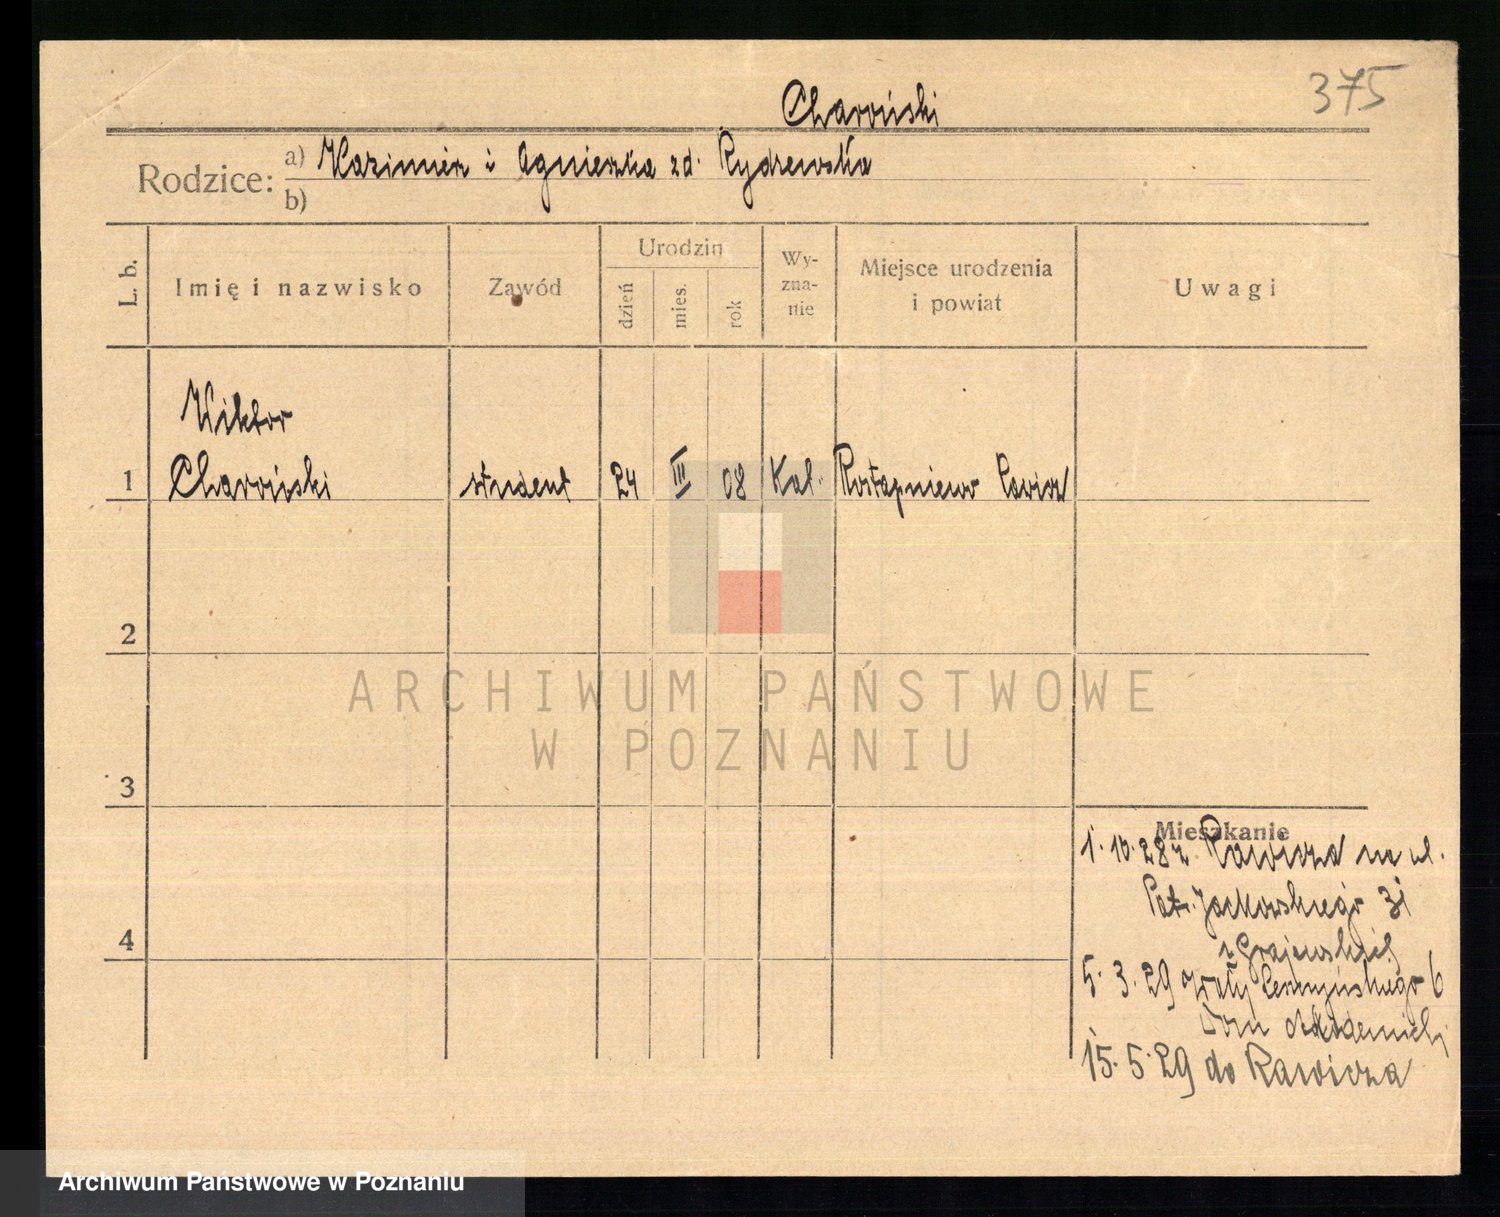 375
Charoński
Rodzice: a) Kazimierz i Agnieszka zd. Rydzewska
b)
L. b.
Imię i nazwisko
Zawód
Urodzin
dzień
mies.
rok
Wy-
zna-
nie
Miejsce urodzenia
i powiat
Uwagi
Wiktor
1 Charoński student 24 III 08 Kat.
2
3
4
Mieszkanie
1.10.28 z Rawicza na ul.
Patr. Jackowskiego 31
5.3.29 6
Dom Akademicki
15.5.29 do Rawicza
ARCHIWUM PAŃSTWOWE
W POZNANIU
Archiwum Państwowe w Poznaniu